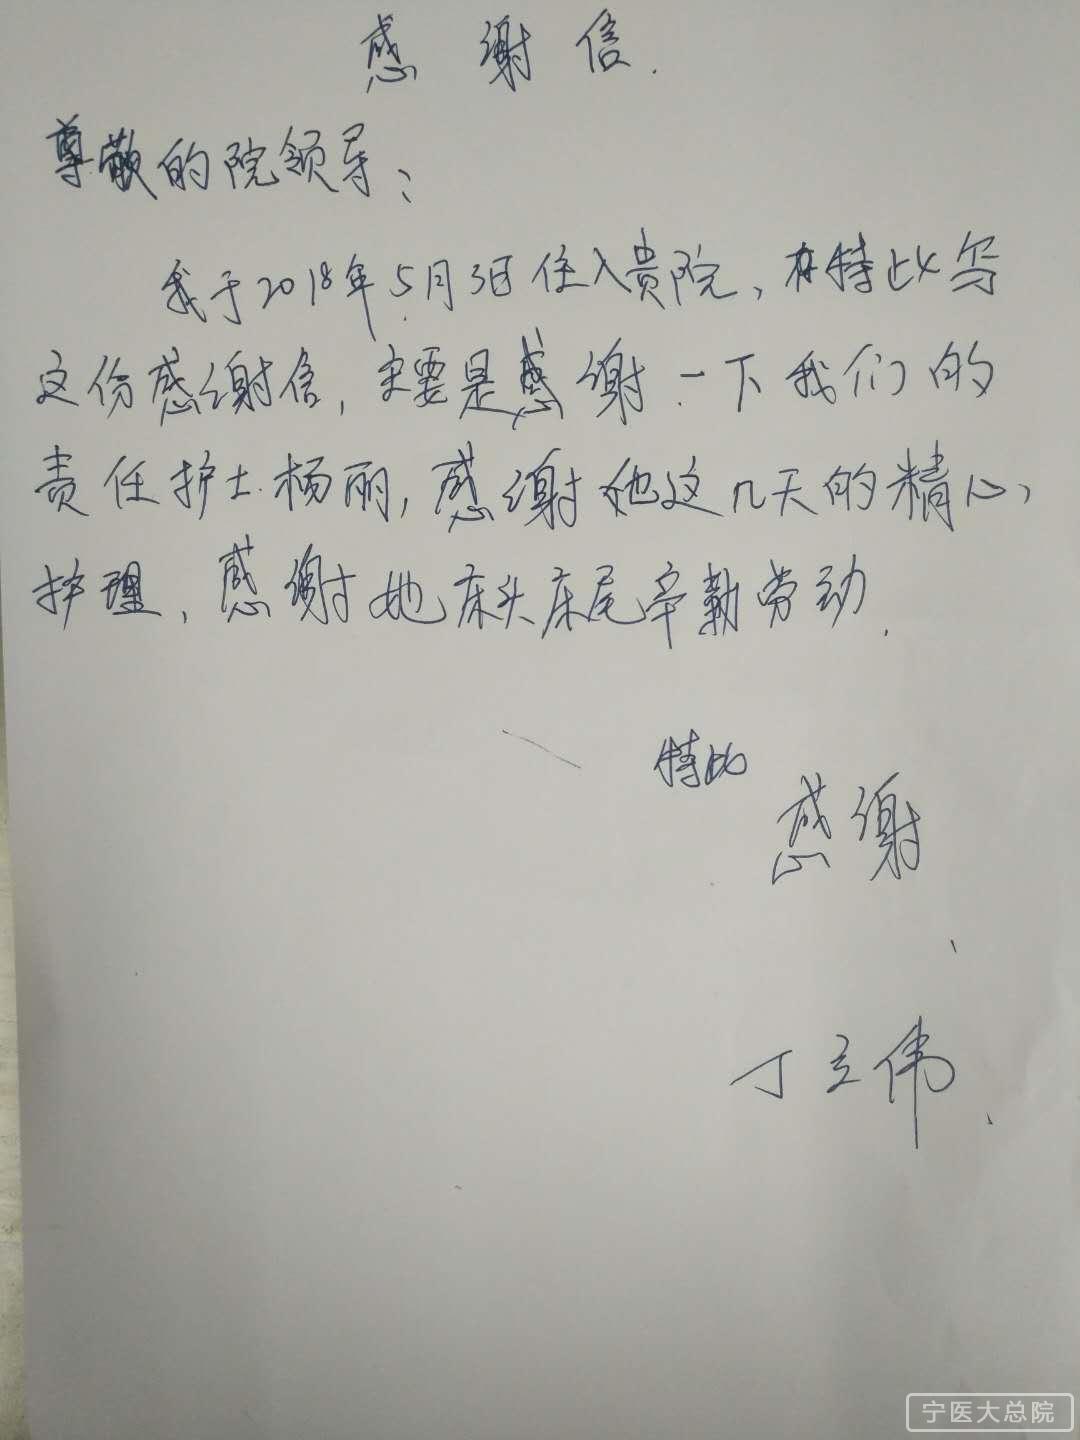 感谢信.
尊敬的院领导：
我于2018年5月3日住入贵院，在特此写
这份感谢信，主要是感谢一下我们的
责任护士杨丽，感谢她这几天的精心
护理，感谢她床头床尾辛勤劳动.
特此
感谢
丁立伟
宁医大总院